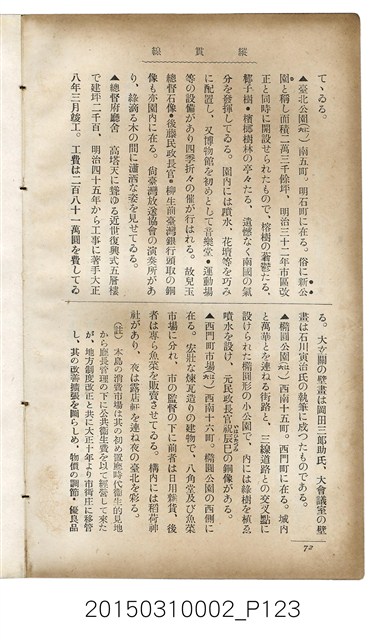 線貫縱
てゐる。
▲臺北公園 南五町。明石町に在る。俗に新公
園と稱し面積二萬三千餘坪、明治三十二年市區改
正と同時に開設せられたもので、榕樹の蓊鬱たる、
椰子樹・檳榔樹林の亭々たる、遺憾なく南國の氣
分を發揮してゐる。園內には噴水、花壇等を巧み
に配置し、又博物館を初めとして音樂堂・運動場
等の設備があり四季折々の催が行はれる。故兒玉
總督石像・後藤民政長官・柳生前臺灣銀行頭取の銅
像も亦園內に在る。尙臺灣放送協會の演奏所があ
り、綠滴る木の間に瀟洒な姿を見せてゐる。
▲總督府廳舍 高塔天に聳ゆる近世復興式五層樓
で建坪二千百、明治四十五年から工事に著手大正
八年三月竣工。工費は二百八十一萬圓を費してゐ
る。大玄關の壁畫は岡田三郞助氏、大會議室の壁
畫は石川寅治氏の執筆に成つたものである。
▲橢圓公園 西南十五町。西門町に在る。城內
と萬華とを連ねる街路と、三線道路との交叉點に
設けられた橢圓形の小公園で、內には綠樹を植ゑ
噴水を設け、元民政長官祝辰巳の銅像がある。
▲西門町市場 西南十六町。橢圓公園の西側に
在る。宏壯な煉瓦造りの建物で、八角堂及び魚菜
市場に分れ、市の監督の下に前者は日用雜貨、後
者は專ら魚菜を販賣させてゐる。構內には稻荷神
社があり、夜は露店軒を連ね夜の臺北を彩る。
(註) 本島の消費市場は其の初め置廳時代衞生的見地
から廳長管理の下に公共衞生費を以て經營して來た
が、地方制度改正と共に大正十年より市街庄に移管
し、其の改善擴張を圖らしめ、物價の調節・優良品
72
20150310002_P123